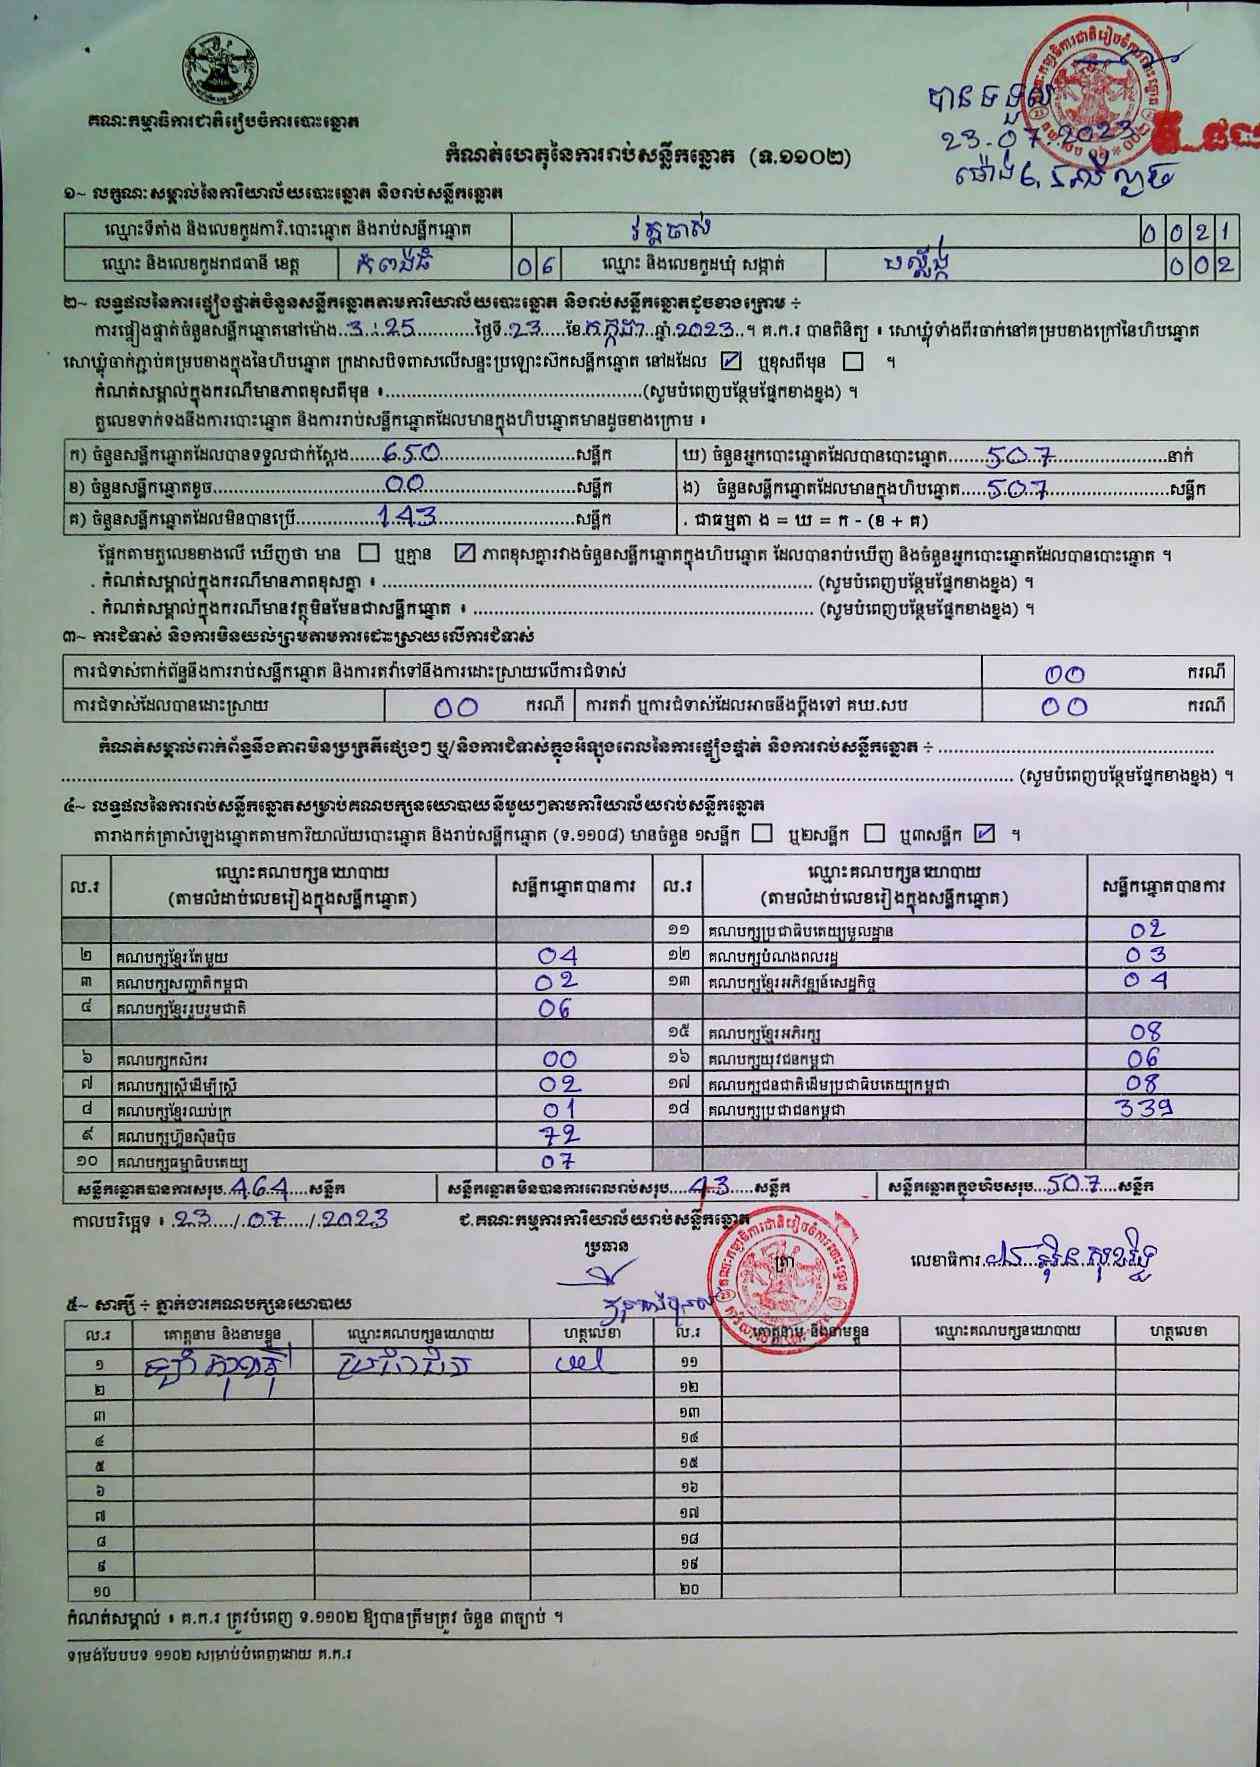 គណៈកម្មាធិការជាតិរៀបចំការបោះឆ្នោត
បានទទួល
23.07.2023
កំណត់ហេតុនៃការរាប់សន្លឹកឆ្នោត (ទ.១១០២)
១~ លក្ខណៈសម្គាល់នៃការិយាល័យបោះឆ្នោត និងរាប់សន្លឹកឆ្នោត
ឈ្មោះទីតាំង និងលេខកូដការិ.បោះឆ្នោត និងរាប់សន្លឹកឆ្នោត វត្តចាស់ 0021
ឈ្មោះ និងលេខកូដរាជធានី ខេត្ត កំពង់ធំ 06 ឈ្មោះ និងលេខកូដឃុំ សង្កាត់ 002
២~ លទ្ធផលនៃការផ្ទៀងផ្ទាត់ចំនួនសន្លឹកឆ្នោតតាមការិយាល័យបោះឆ្នោត និងរាប់សន្លឹកឆ្នោតដូចខាងក្រោម ÷
ការផ្ទៀងផ្ទាត់ចំនួនសន្លឹកឆ្នោតនៅម៉ោង 3:25 ថ្ងៃទី 23 ខែ កក្កដា ឆ្នាំ 2023 ។ គ.ក.រ បានពិនិត្យ ៖ សោឃ្លុំទាំងពីរចាក់នៅគម្របខាងក្រៅនៃហិបឆ្នោត
សោឃ្លុំចាក់ភ្ជាប់គម្របខាងក្នុងនៃហិបឆ្នោត ក្រដាសបិទពាសលើសន្ទះប្រឡោះស៊កសន្លឹកឆ្នោត នៅដដែល ☑ ឬខុសពីមុន ☐ ។
កំណត់សម្គាល់ក្នុងករណីមានភាពខុសពីមុន ៖ (សូមបំពេញបន្ថែមផ្នែកខាងខ្នង) ។
តួលេខទាក់ទងនឹងការបោះឆ្នោត និងការរាប់សន្លឹកឆ្នោតដែលមានក្នុងហិបឆ្នោតមានដូចខាងក្រោម ៖
ក) ចំនួនសន្លឹកឆ្នោតដែលបានទទួលជាក់ស្តែង 650 សន្លឹក ឃ) ចំនួនអ្នកបោះឆ្នោតដែលបានបោះឆ្នោត 507 នាក់
ខ) ចំនួនសន្លឹកឆ្នោតខូច 00 សន្លឹក ង) ចំនួនសន្លឹកឆ្នោតដែលមានក្នុងហិបឆ្នោត 507 សន្លឹក
គ) ចំនួនសន្លឹកឆ្នោតដែលមិនបានប្រើ 143 សន្លឹក . ជាធម្មតា ង = ឃ = ក - (ខ + គ)
ផ្អែកតាមតួលេខខាងលើ ឃើញថា មាន ☐ ឬគ្មាន ☑ ភាពខុសគ្នារវាងចំនួនសន្លឹកឆ្នោតក្នុងហិបឆ្នោត ដែលបានរាប់ឃើញ និងចំនួនអ្នកបោះឆ្នោតដែលបានបោះឆ្នោត ។
. កំណត់សម្គាល់ក្នុងករណីមានភាពខុសគ្នា ៖ (សូមបំពេញបន្ថែមផ្នែកខាងខ្នង) ។
. កំណត់សម្គាល់ក្នុងករណីមានវត្ថុមិនមែនជាសន្លឹកឆ្នោត ៖ (សូមបំពេញបន្ថែមផ្នែកខាងខ្នង) ។
៣~ ការជំទាស់ និងការមិនយល់ព្រមតាមការដោះស្រាយលើការជំទាស់
ការជំទាស់ពាក់ព័ន្ធនឹងការរាប់សន្លឹកឆ្នោត និងការតវ៉ាទៅនឹងការដោះស្រាយលើការជំទាស់ 00 ករណី
ការជំទាស់ដែលបានដោះស្រាយ 00 ករណី ការតវ៉ា ឬការជំទាស់ដែលអាចនឹងប្តឹងទៅ គឃ.សប 00 ករណី
កំណត់សម្គាល់ពាក់ព័ន្ធនឹងភាពមិនប្រក្រតីផ្សេងៗ ឬ/និងការជំទាស់ក្នុងអំឡុងពេលនៃការផ្ទៀងផ្ទាត់ និងការរាប់សន្លឹកឆ្នោត ÷
(សូមបំពេញបន្ថែមផ្នែកខាងខ្នង) ។
៤~ លទ្ធផលនៃការរាប់សន្លឹកឆ្នោតសម្រាប់គណបក្សនយោបាយនីមួយៗតាមការិយាល័យរាប់សន្លឹកឆ្នោត
តារាងកត់ត្រាសំឡេងឆ្នោតតាមការិយាល័យបោះឆ្នោត និងរាប់សន្លឹកឆ្នោត (ទ.១១០៨) មានចំនួន ១សន្លឹក ☐ ឬ២សន្លឹក ☐ ឬ៣សន្លឹក ☑ ។
ល.រ ឈ្មោះគណបក្សនយោបាយ (តាមលំដាប់លេខរៀងក្នុងសន្លឹកឆ្នោត) សន្លឹកឆ្នោតបានការ ល.រ ឈ្មោះគណបក្សនយោបាយ (តាមលំដាប់លេខរៀងក្នុងសន្លឹកឆ្នោត) សន្លឹកឆ្នោតបានការ
១១ គណបក្សប្រជាធិបតេយ្យមូលដ្ឋាន 02
២ គណបក្សខ្មែរតែមួយ 04 ១២ គណបក្សបំណងពលរដ្ឋ 03
៣ គណបក្សសញ្ជាតិកម្ពុជា 02 ១៣ គណបក្សខ្មែរអភិវឌ្ឍន៍សេដ្ឋកិច្ច 04
៤ គណបក្សខ្មែររួបរួមជាតិ 06
១៥ គណបក្សខ្មែរអភិរក្ស 08
៦ គណបក្សកសិករ 00 ១៦ គណបក្សយុវជនកម្ពុជា 06
៧ គណបក្សស្ត្រីដើម្បីស្ត្រី 02 ១៧ គណបក្សជនជាតិដើមប្រជាធិបតេយ្យកម្ពុជា 08
៨ គណបក្សខ្មែរឈប់ក្រ 01 ១៨ គណបក្សប្រជាជនកម្ពុជា 339
៩ គណបក្សហ៊្វុនស៊ិនប៉ិច 72
១០ គណបក្សធម្មាធិបតេយ្យ 07
សន្លឹកឆ្នោតបានការសរុប 464 សន្លឹក សន្លឹកឆ្នោតមិនបានការពេលរាប់សរុប 43 សន្លឹក សន្លឹកឆ្នោតក្នុងហិបសរុប 507 សន្លឹក
កាលបរិច្ឆេទ ៖ 23/07/2023 ជ.គណៈកម្មការការិយាល័យរាប់សន្លឹកឆ្នោត
ប្រធាន ត្រា លេខាធិការ
៥~ សាក្សី ÷ ភ្នាក់ងារគណបក្សនយោបាយ
ល.រ គោត្តនាម និងនាមខ្លួន ឈ្មោះគណបក្សនយោបាយ ហត្ថលេខា ល.រ គោត្តនាម និងនាមខ្លួន ឈ្មោះគណបក្សនយោបាយ ហត្ថលេខា
១ ១១
២ ១២
៣ ១៣
៤ ១៤
៥ ១៥
៦ ១៦
៧ ១៧
៨ ១៨
៩ ១៩
១០ ២០
កំណត់សម្គាល់ ៖ គ.ក.រ ត្រូវបំពេញ ទ.១១០២ ឱ្យបានត្រឹមត្រូវ ចំនួន ៣ច្បាប់ ។
ទម្រង់បែបបទ ១១០២ សម្រាប់បំពេញដោយ គ.ក.រ